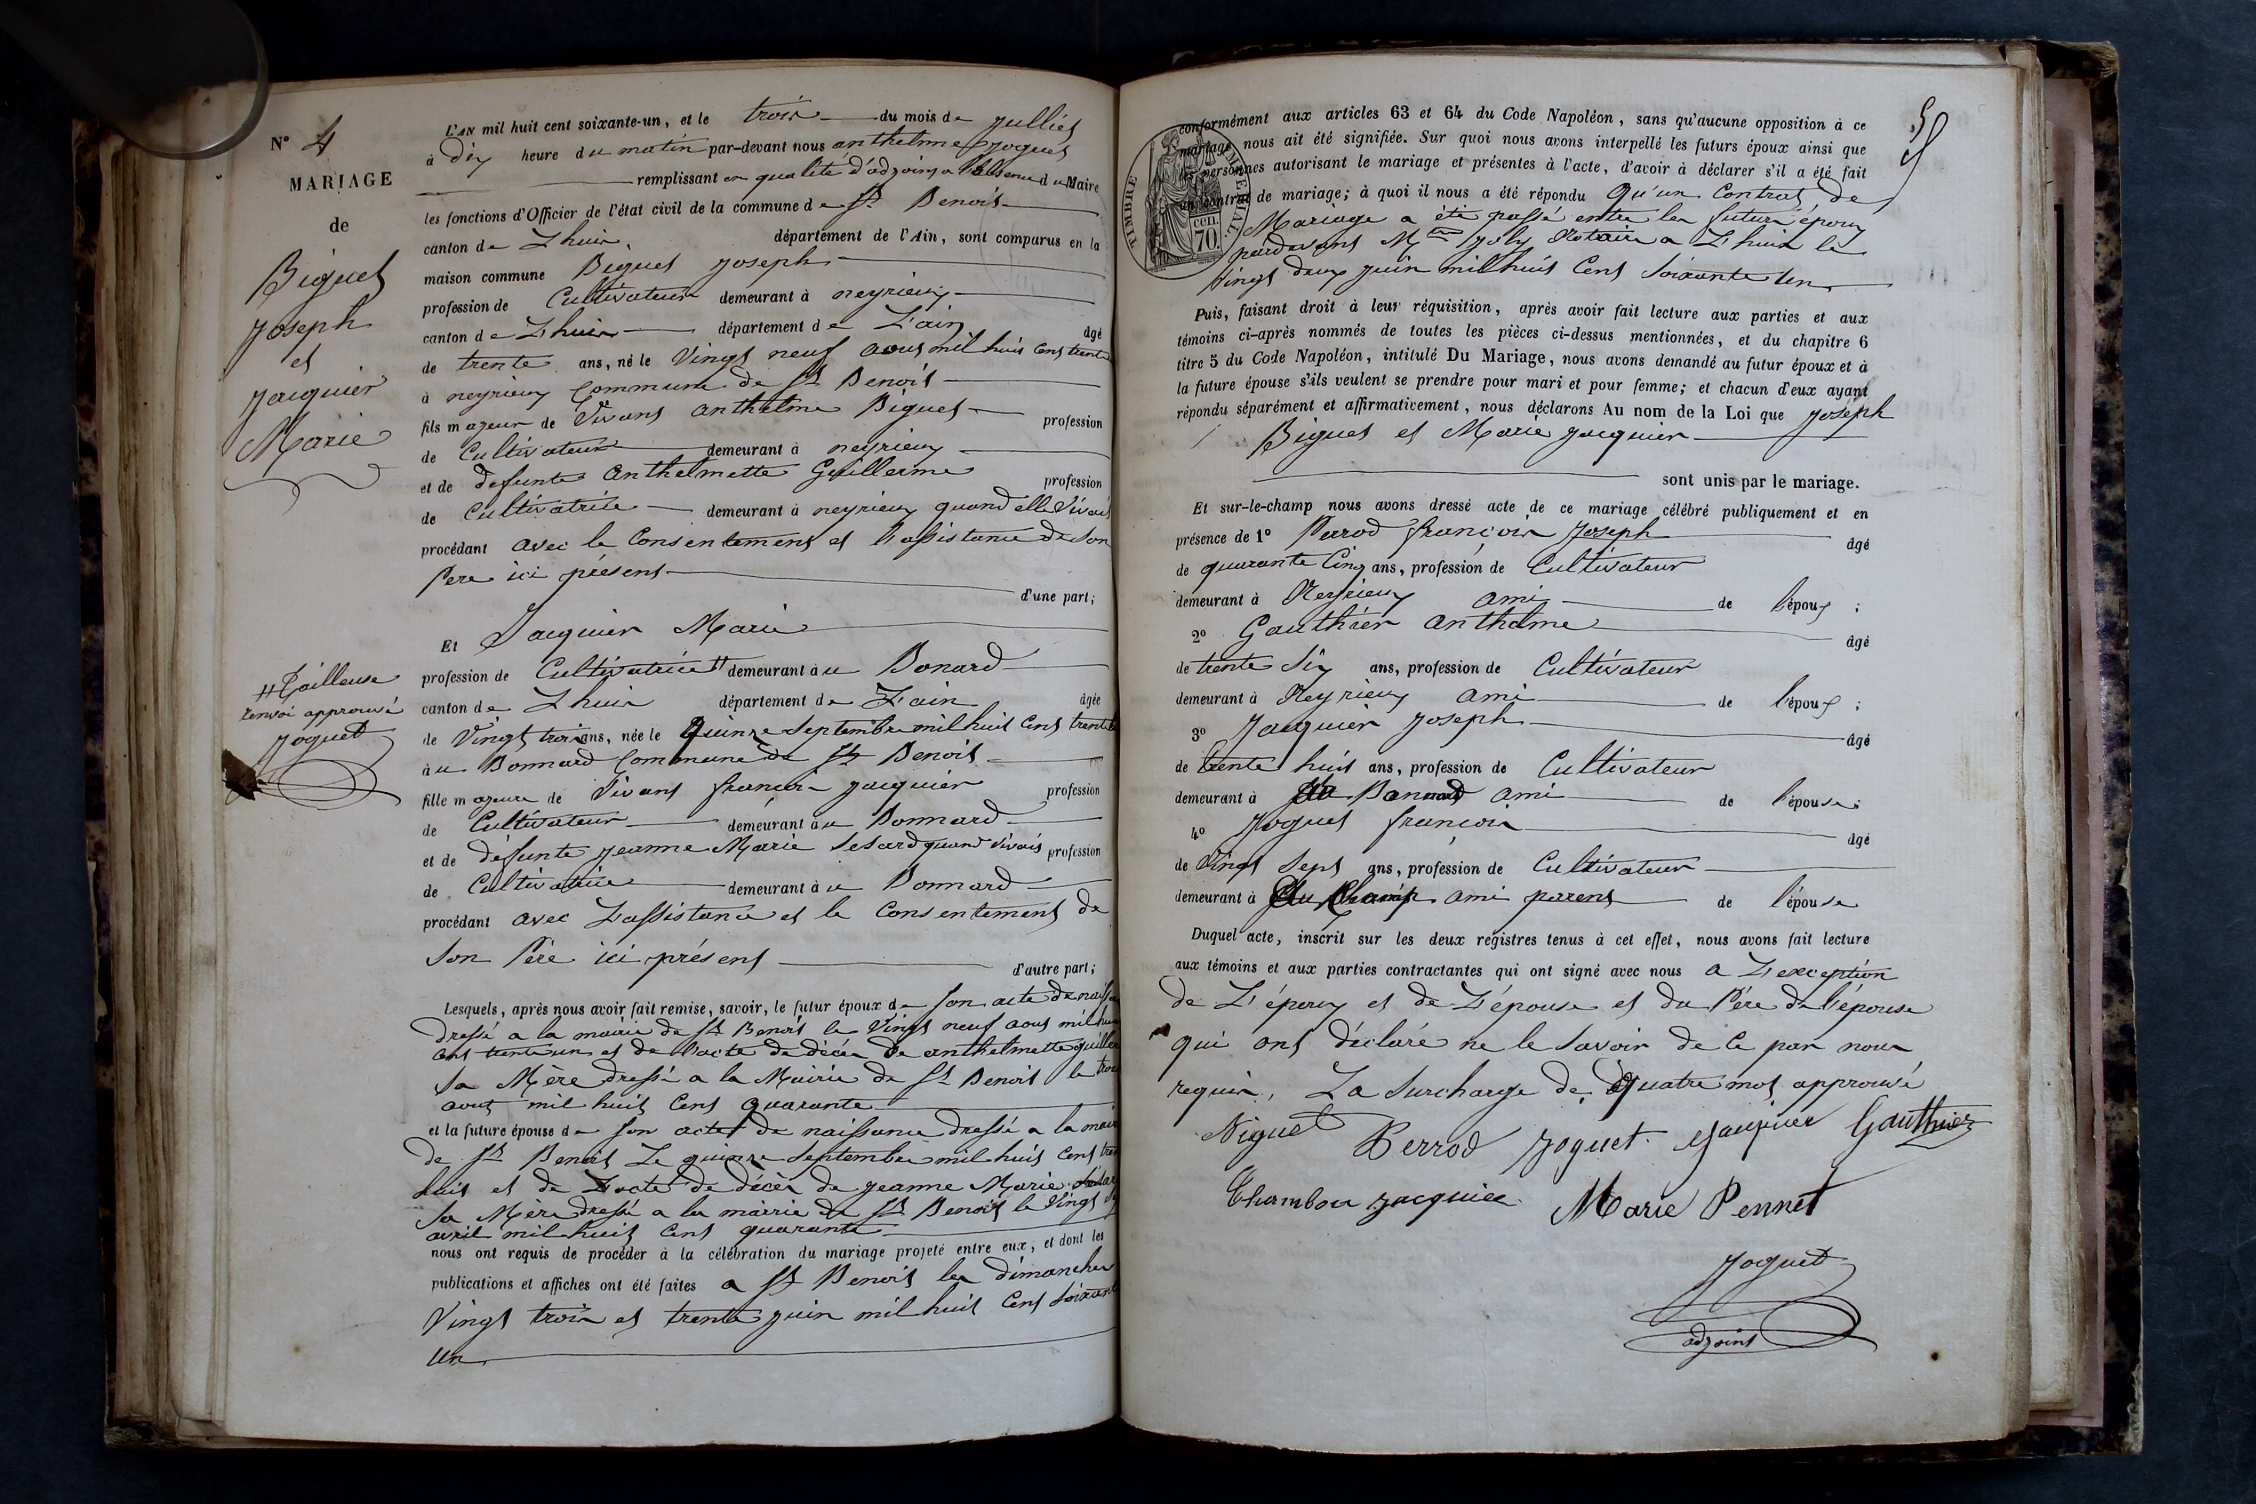 N° 4
MARIAGE
de
Biguet
Joseph
et
Jacquier
Marie
# Tailleuse
renvoi approuvé
Joguet
L'AN mil huit cent soixante-un, et le trois du mois de Julliet
à dix heure du matin par-devant nous anthelme Joguet
remplissant en qualité d'adjoint a l'absence du Maire
les fonctions d'Officier de l'état civil de la commune de St Benoit
canton de Lhuis, département de l'Ain, sont comparus en la
maison commune Biguet Joseph
profession de Cultivateur demeurant à neyrieux
canton de Lhuis département de L'ain âgé
de trente ans, né le Vingt neuf aout mil huit cent trente
à neyrieux Commune de St Benoit
fils majeur de Vivant anthelme Biguet profession
de Cultivateur demeurant à neyrieux
et de defunte anthelmette Guillerme profession
de Cultivatrice demeurant à neyrieux quand elle Vivait
procédant avec le Consentement et l'assistance de Son
Pere ici présent
d'une part;
Et Jacquier Marie
profession de Cultivatrice # demeurant à u Bonard
canton de Lhuis département de L'ain âgée
de Vingt trois ans, née le Quinze Septembre mil huit Cent trente
à u Bonnard Commune de St Benoit
fille majeure de Vivant françois Jacquier profession
de Cultivateur demeurant à u Bonnard
et de défunte Jeanne Marie Sesard quand vivait profession
de Cultivatrice demeurant à u Bonnard
procédant avec L'assistance et le Consentement de
Son Père ici présent
d'autre part;
Lesquels, après nous avoir fait remise, savoir, le futur époux de Son acte de naiss
dressé a la mairie de St Benoit le Vingt neuf aout mil hui
cent trente un et de l'acte de décès de anthelmette guiller
Sa Mère dressé a la Mairie de St Benoit le trois
aout mil huit Cent quarante
et la future épouse de Son acte de naissance dressé a la mairi
de St Benoit Le quinze Septembre mil huit Cent tren
huit et de L'acte de décès de Jeanne Marie Sesar
Sa Mère dressé a la mairie de St Benoit le Vingt
avril mil huit Cent quarante
nous ont requis de procéder à la célébration du mariage projeté entre eux, et dont les
publications et affiches ont été faites a St Benoit les dimanches
Vingt trois et trente juin mil huit Cent soixante
un
TIMBRE IMPERIAL
CEN. 70.
conformément aux articles 63 et 64 du Code Napoléon, sans qu'aucune opposition à ce
mariage nous ait été signifiée. Sur quoi nous avons interpellé les futurs époux ainsi que
les personnes autorisant le mariage et présentes à l'acte, d'avoir à déclarer s'il a été fait
un contrat de mariage; à quoi il nous a été répondu Qu'un Contrat de
Mariage a été passé entre les futurs époux
pardevant Mtre Joly Notaire a Lhuis le
Vingt deux juin mil huit Cent Soixante un
Puis, faisant droit à leur réquisition, après avoir fait lecture aux parties et aux
témoins ci-après nommés de toutes les pièces ci-dessus mentionnées, et du chapitre 6
titre 5 du Code Napoléon, intitulé Du Mariage, nous avons demandé au futur époux et à
la future épouse s'ils veulent se prendre pour mari et pour femme; et chacun d'eux ayant
répondu séparément et affirmativement, nous déclarons Au nom de la Loi que Joseph
Biguet et Marie Jacquier
sont unis par le mariage.
Et sur-le-champ nous avons dressé acte de ce mariage célébré publiquement et en
présence de 1° Perrod françois Joseph âgé
de quarante Cinq ans, profession de Cultivateur
demeurant à Neyrieux ami de l'époux ;
2° Gauthier anthelme âgé
de trente Six ans, profession de Cultivateur
demeurant à Neyrieux ami de l'époux ;
3° Jacquier Joseph âgé
de trente huit ans, profession de Cultivateur
demeurant à Bonnard ami de l'épouse;
4° Joguet françois âgé
de Vingt Sept ans, profession de Cultivateur
demeurant à Champ ami parent de l'épouse
Duquel acte, inscrit sur les deux registres tenus à cet effet, nous avons fait lecture
aux témoins et aux parties contractantes qui ont signé avec nous a L'exception
de L'époux et de L'épouse et du Père de l'épouse
qui ont déclaré ne le Savoir de Ce par nous
requis, La Surcharge de Quatre mot approuvé
Biguet Perrod Joguet Jacquier Gauthier
Jacquier Marie Pennet
Joguet
adjoint